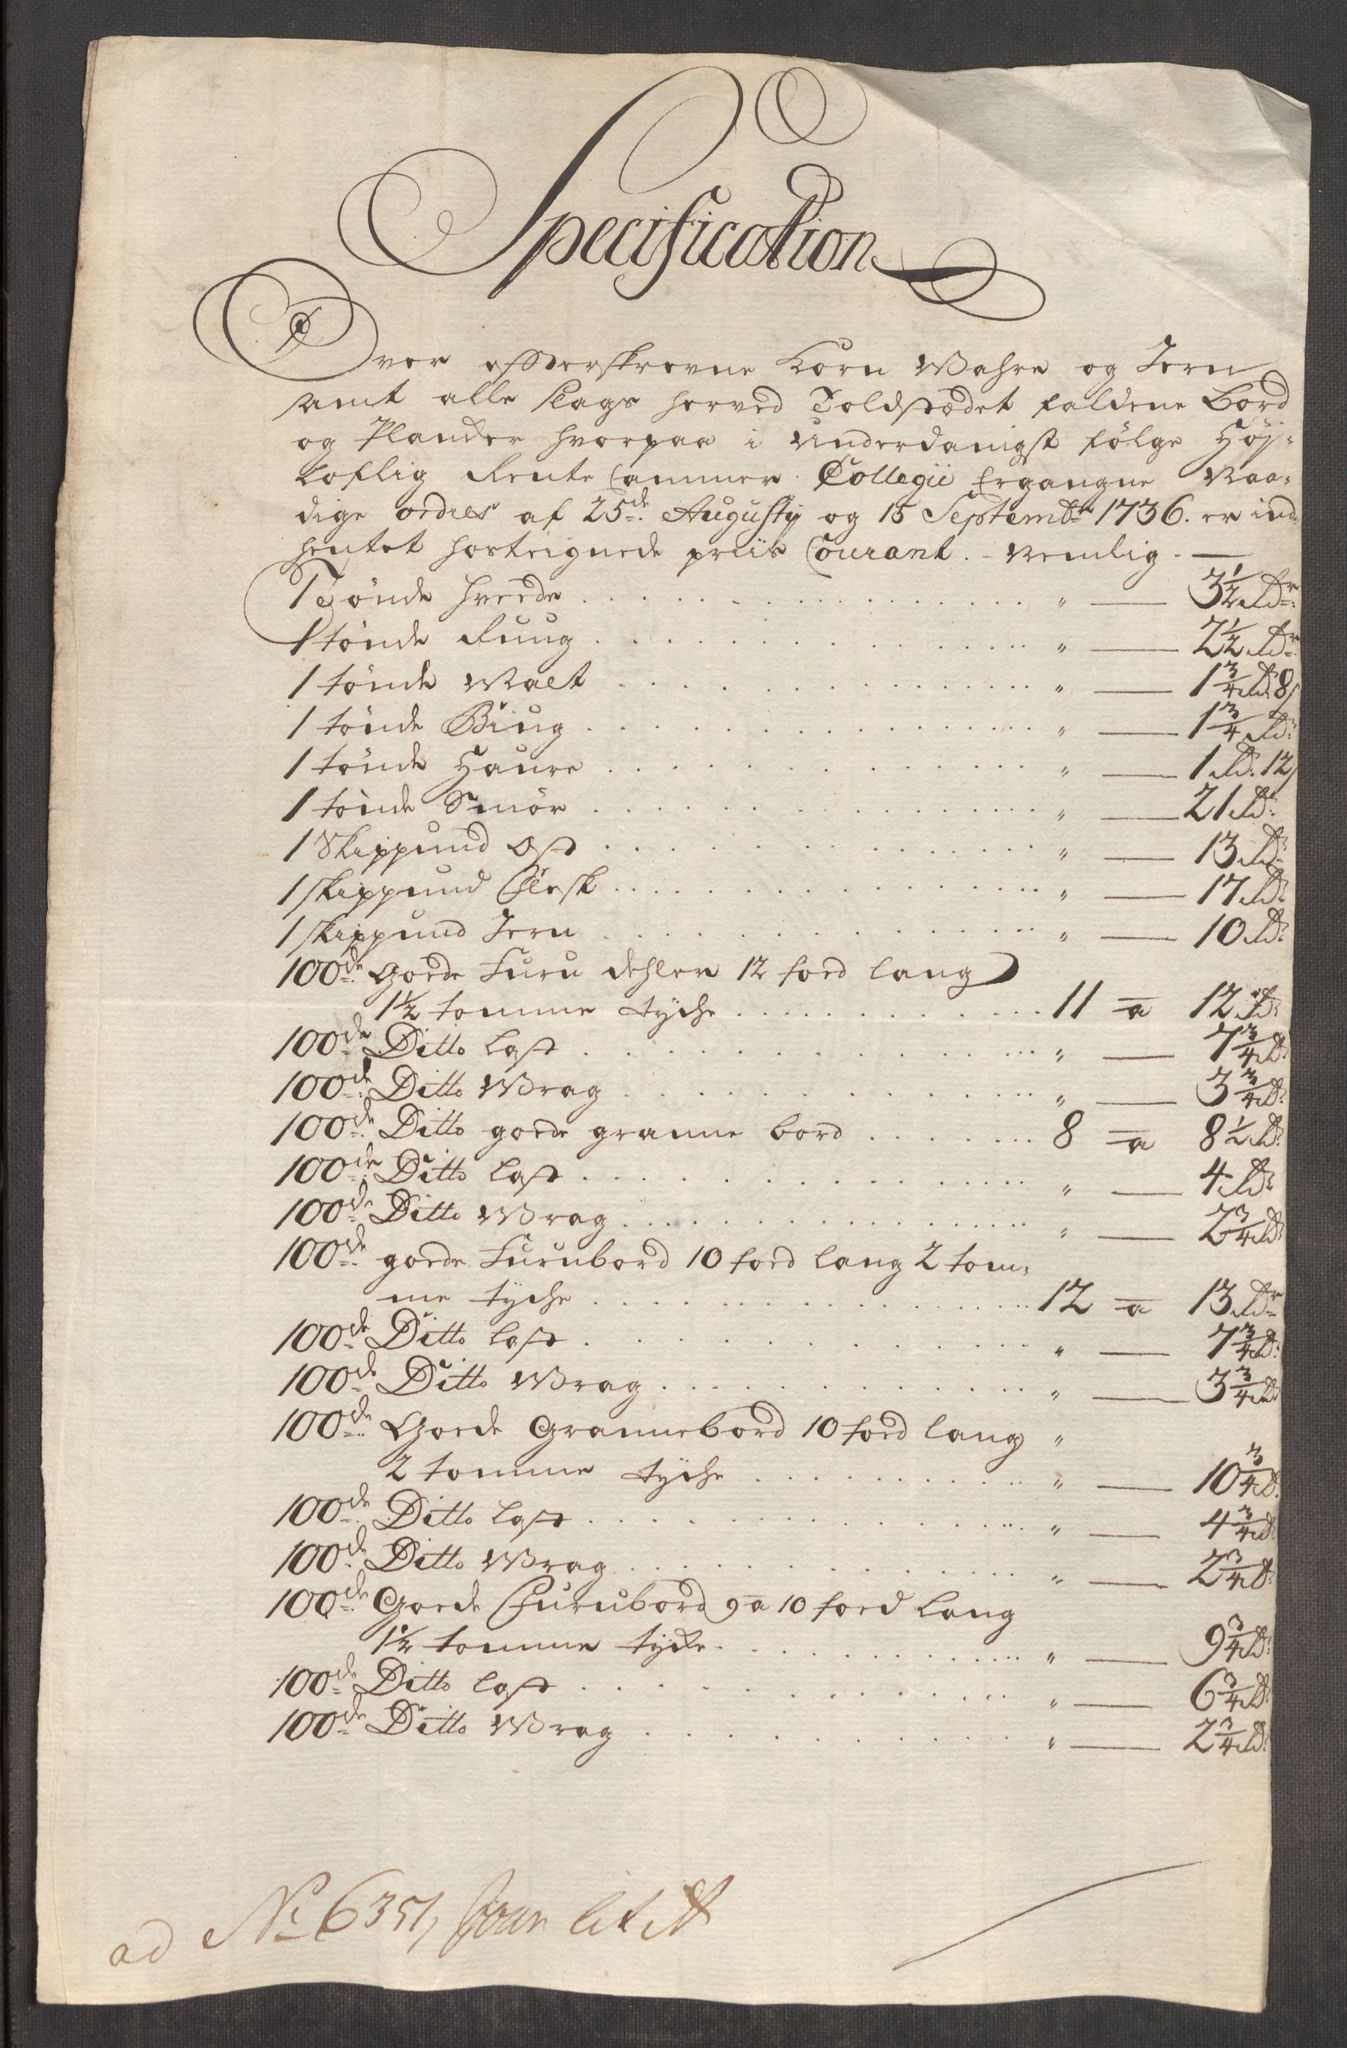 Specification
Over efterskrevne Korn Wahre og Jern
samt alle slags herved Toldstædet faldene Bord
og Plancker hvorpaa i Underdanigst følge Høj-
Loflig Rente Cammer Collegii Ergangne Naa-
dige ordres af 25de Augusty og 15 Septembr 1736. er ind
hentet hostegnede priis Courant. Nemlig. —
1 Tønde hvede . . . " — 3½ Rdr
1 tønde Ruug . . . " — 2½ Rdr
1 tønde Malt . . . " — 1¾ Rd. 8/
1 tønde Biug . . . " — 1¾ Rd:
1 tønde Haure . . . " — 1 Rd. 12/
1 tønde Smør . . . " — 21 Rd:
1 Skippund Ost . . . " — 13 Rd:
1 skippund Flesk . . . " — 17 Rd:
1 skippund Jern . . . " — 10 Rd:
100de Goede Furu dehler 12 foed lang
1½ tomme tyche . . . 11 a 12 Rd:
100de Ditto Last . . . " — 7¾ Rd:
100de Ditto Wrag . . . " — 3¾ Rd:
100de Ditto goede granne bord . . . 8 a 8½ Rd:
100de Ditto Last . . . " — 4 Rd:
100de Ditto Wrag . . . " — 2¾ Rd:
100de goede Furubord 10 foed lang 2 tom-
me tyche . . . 12 a 13 Rdr
100de Ditto Last . . . " — 7¾ Rd:
100de Ditto Wrag . . . " — 3¾ Rd
100de Goede Grannebord 10 foed lang "
2 tomme tyche . . . " — 10¾ Rd.
100de Ditto Last . . . " — 4¾ Rd:
100de Ditto Wrag . . . " — 2¾ Rd:
100de Goede Furubord 9 a 10 foed Lang
1½ tomme tycke . . . " — 9¾ Rd:
100de Ditto Last . . . " — 6¾ Rd:
100de Ditto Wrag . . . " — 2¾ Rd:
ad No 6351, lit A